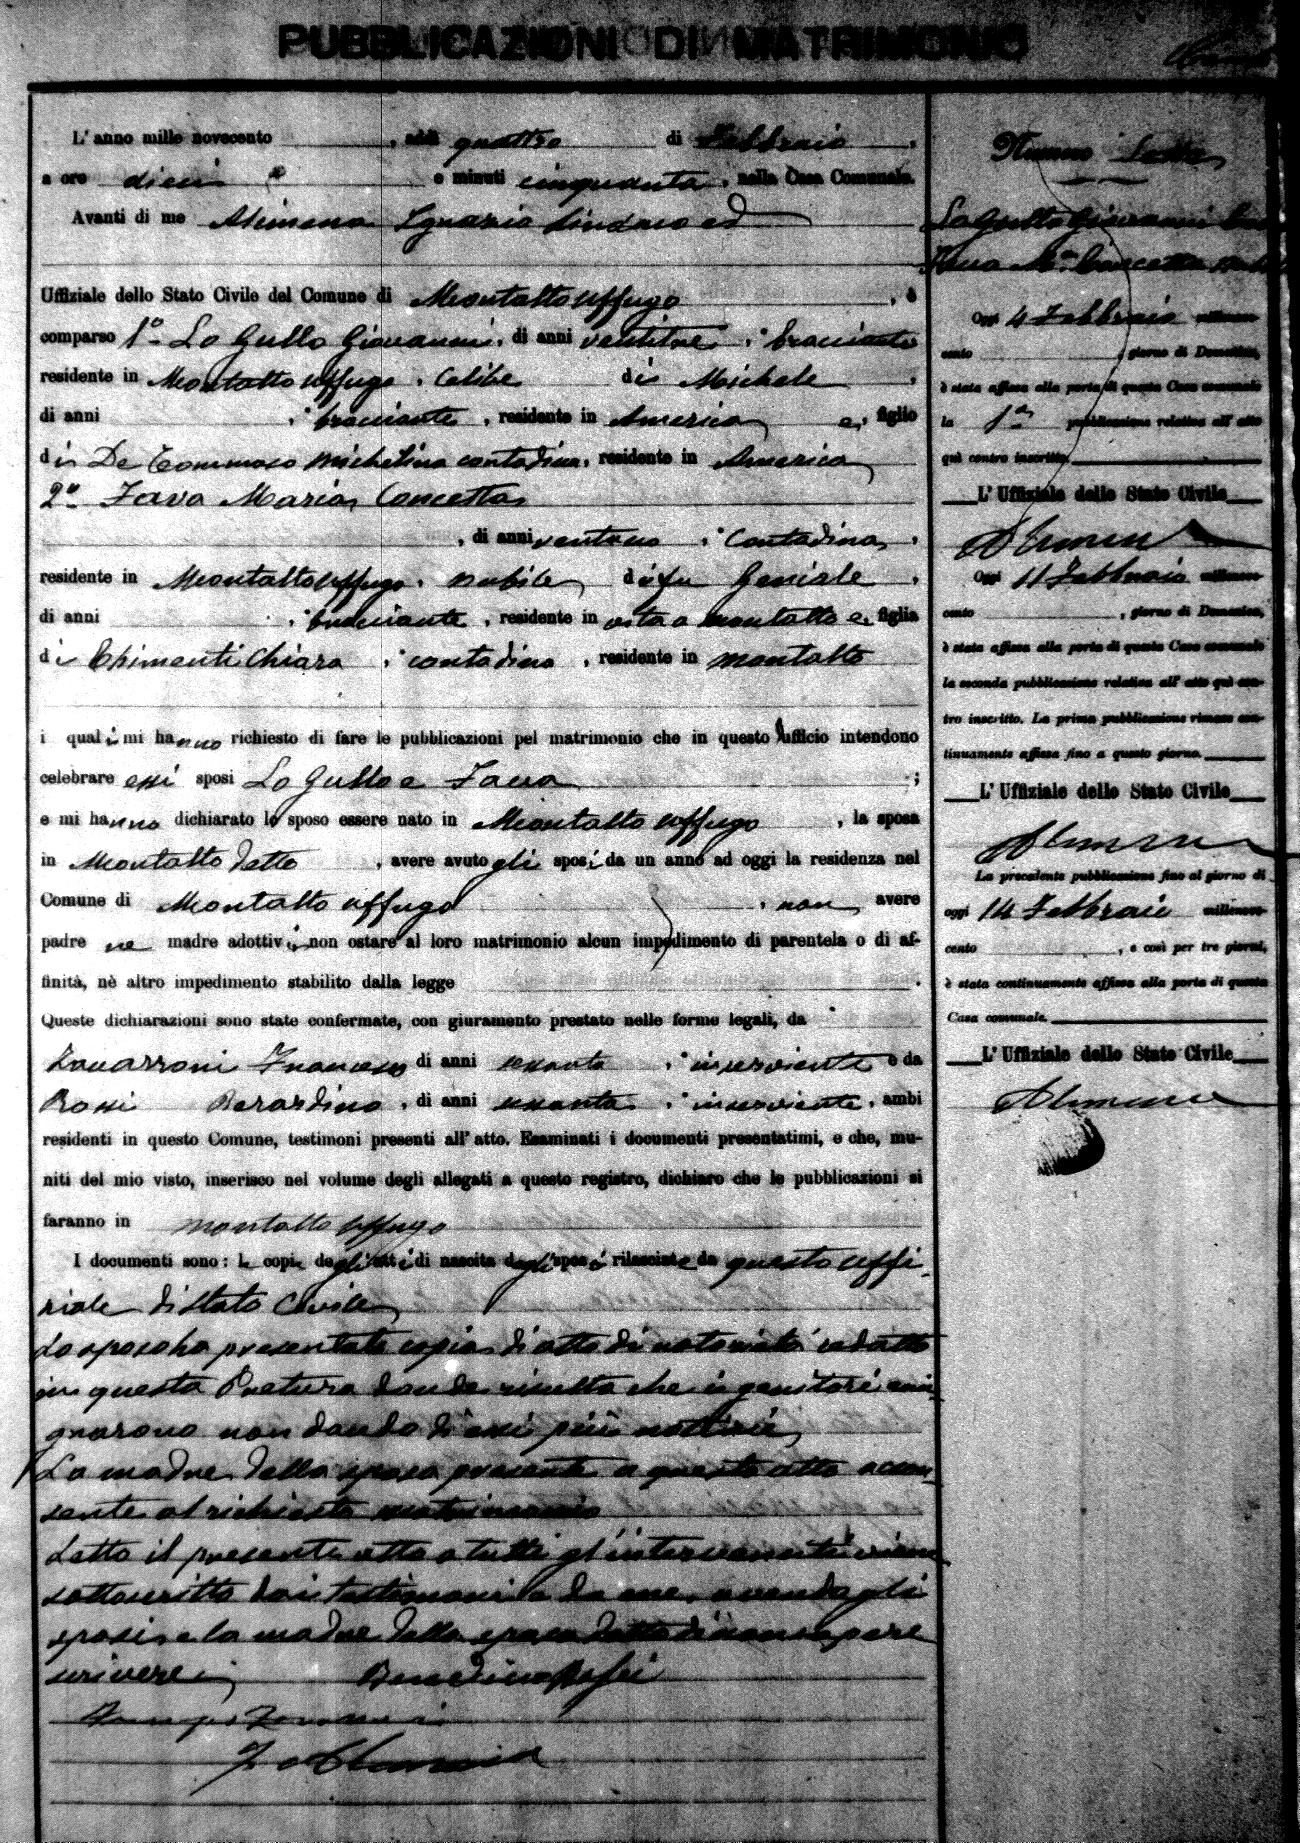 PUBBLICAZIONI DI MATRIMONIO
L'anno mille novecento , addì quattro di Febbraio ,
a ore dieci e minuti cinquanta, nella Casa Comunale.
Avanti di me Alimena Ignazio Sindaco ed
Uffiziale dello Stato Civile del Comune di Montalto Uffugo , è
comparso 1º Lo Gullo Giovanni, di anni ventitre, bracciante
residente in Montalto Uffugo, celibe di Michele ,
di anni , bracciante, residente in America e, figlio
di De Tommaso Michelina contadina, residente in America
2º Fava Maria Concetta
, di anni ventuno, contadina,
residente in Montalto Uffugo, nubile, di fu Geniale ,
di anni , bracciante, residente in vita a Montalto e, figlia
di Chimenti Chiara, contadina, residente in Montalto
i quali mi hanno richiesto di fare le pubblicazioni pel matrimonio che in questo ufficio intendono
celebrare essi sposi Lo Gullo e Fava ;
e mi hanno dichiarato lo sposo essere nato in Montalto Uffugo , la sposa
in Montalto detto , avere avuto gli sposi da un anno ad oggi la residenza nel
Comune di Montalto Uffugo , non avere
padre ne madre adottivi, non ostare al loro matrimonio alcun impedimento di parentela o di af-
finità, nè altro impedimento stabilito dalla legge .
Queste dichiarazioni sono state confermate, con giuramento prestato nelle forme legali, da
Zavarroni Francesco di anni sessanta, inserviente e da
Rossi Berardino, di anni sessanta, inserviente, ambi
residenti in questo Comune, testimoni presenti all'atto. Esaminati i documenti presentatimi, e che, mu-
niti del mio visto, inserisco nel volume degli allegati a questo registro, dichiaro che le pubblicazioni si
faranno in Montalto Uffugo
I documenti sono: le copie degli atti di nascita degli sposi rilasciate da questo uffi-
ziale di Stato Civile
Lo sposo ha presentato copia di atto di notorietà redatto
in questa Pretura donde risulta che i genitori emi-
grarono non dando di essi più notizie
La madre della sposa presente a questo atto accon-
sente al richiesto matrimonio
Letto il presente atto a tutti gl'intervenuti viene
sottoscritto dai testimoni e da me, avendo gli
sposi e la madre della sposa detto di non sapere
scrivere
Berardino Rossi
Alimena
Numero Sette
Lo Gullo Giovanni
Fava Mª Concetta
Oggi 4 Febbraio millenove-
cento , giorno di Domenica,
è stata affissa alla porta di questa Casa comunale
la 1ª pubblicazione relativa all'atto
quì contro inscritto.
L'Uffiziale dello Stato Civile
Alimena
Oggi 11 Febbraio millenove-
cento , giorno di Domenica,
è stata affissa alla porta di questa Casa comunale
la seconda pubblicazione relativa all'atto quì con-
tro inscritto. La prima pubblicazione rimase con-
tinuamente affissa fino a questo giorno.
L'Uffiziale dello Stato Civile
Alimena
La precedente pubblicazione fino al giorno di
oggi 14 Febbraio millenove-
cento , e così per tre giorni,
è stata continuamente affissa alla porta di questa
Casa comunale.
L'Uffiziale dello Stato Civile
Alimena